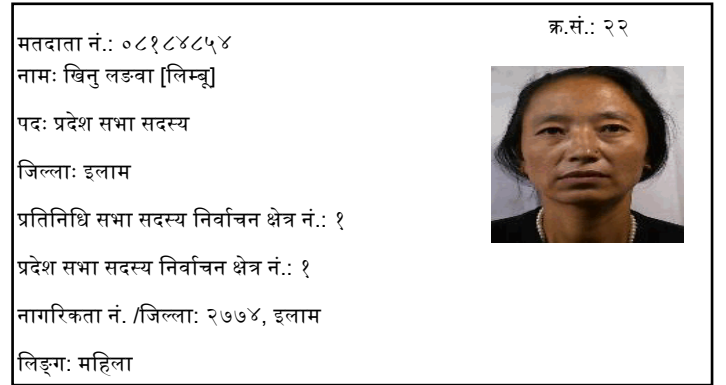 क्र.सं.: २२
मतदाता नं.: ०८१८४८५४
नामः खिनु लङवा [लिम्बू]
पदः प्रदेश सभा सदस्य
जिल्लाः इलाम
प्रतिनिधि सभा सदस्य निर्वाचन क्षेत्र नं.: १
प्रदेश सभा सदस्य निर्वाचन क्षेत्र नं.: १
नागरिकता नं. /जिल्ला: २७७४, इलाम
लिङ्ग: महिला